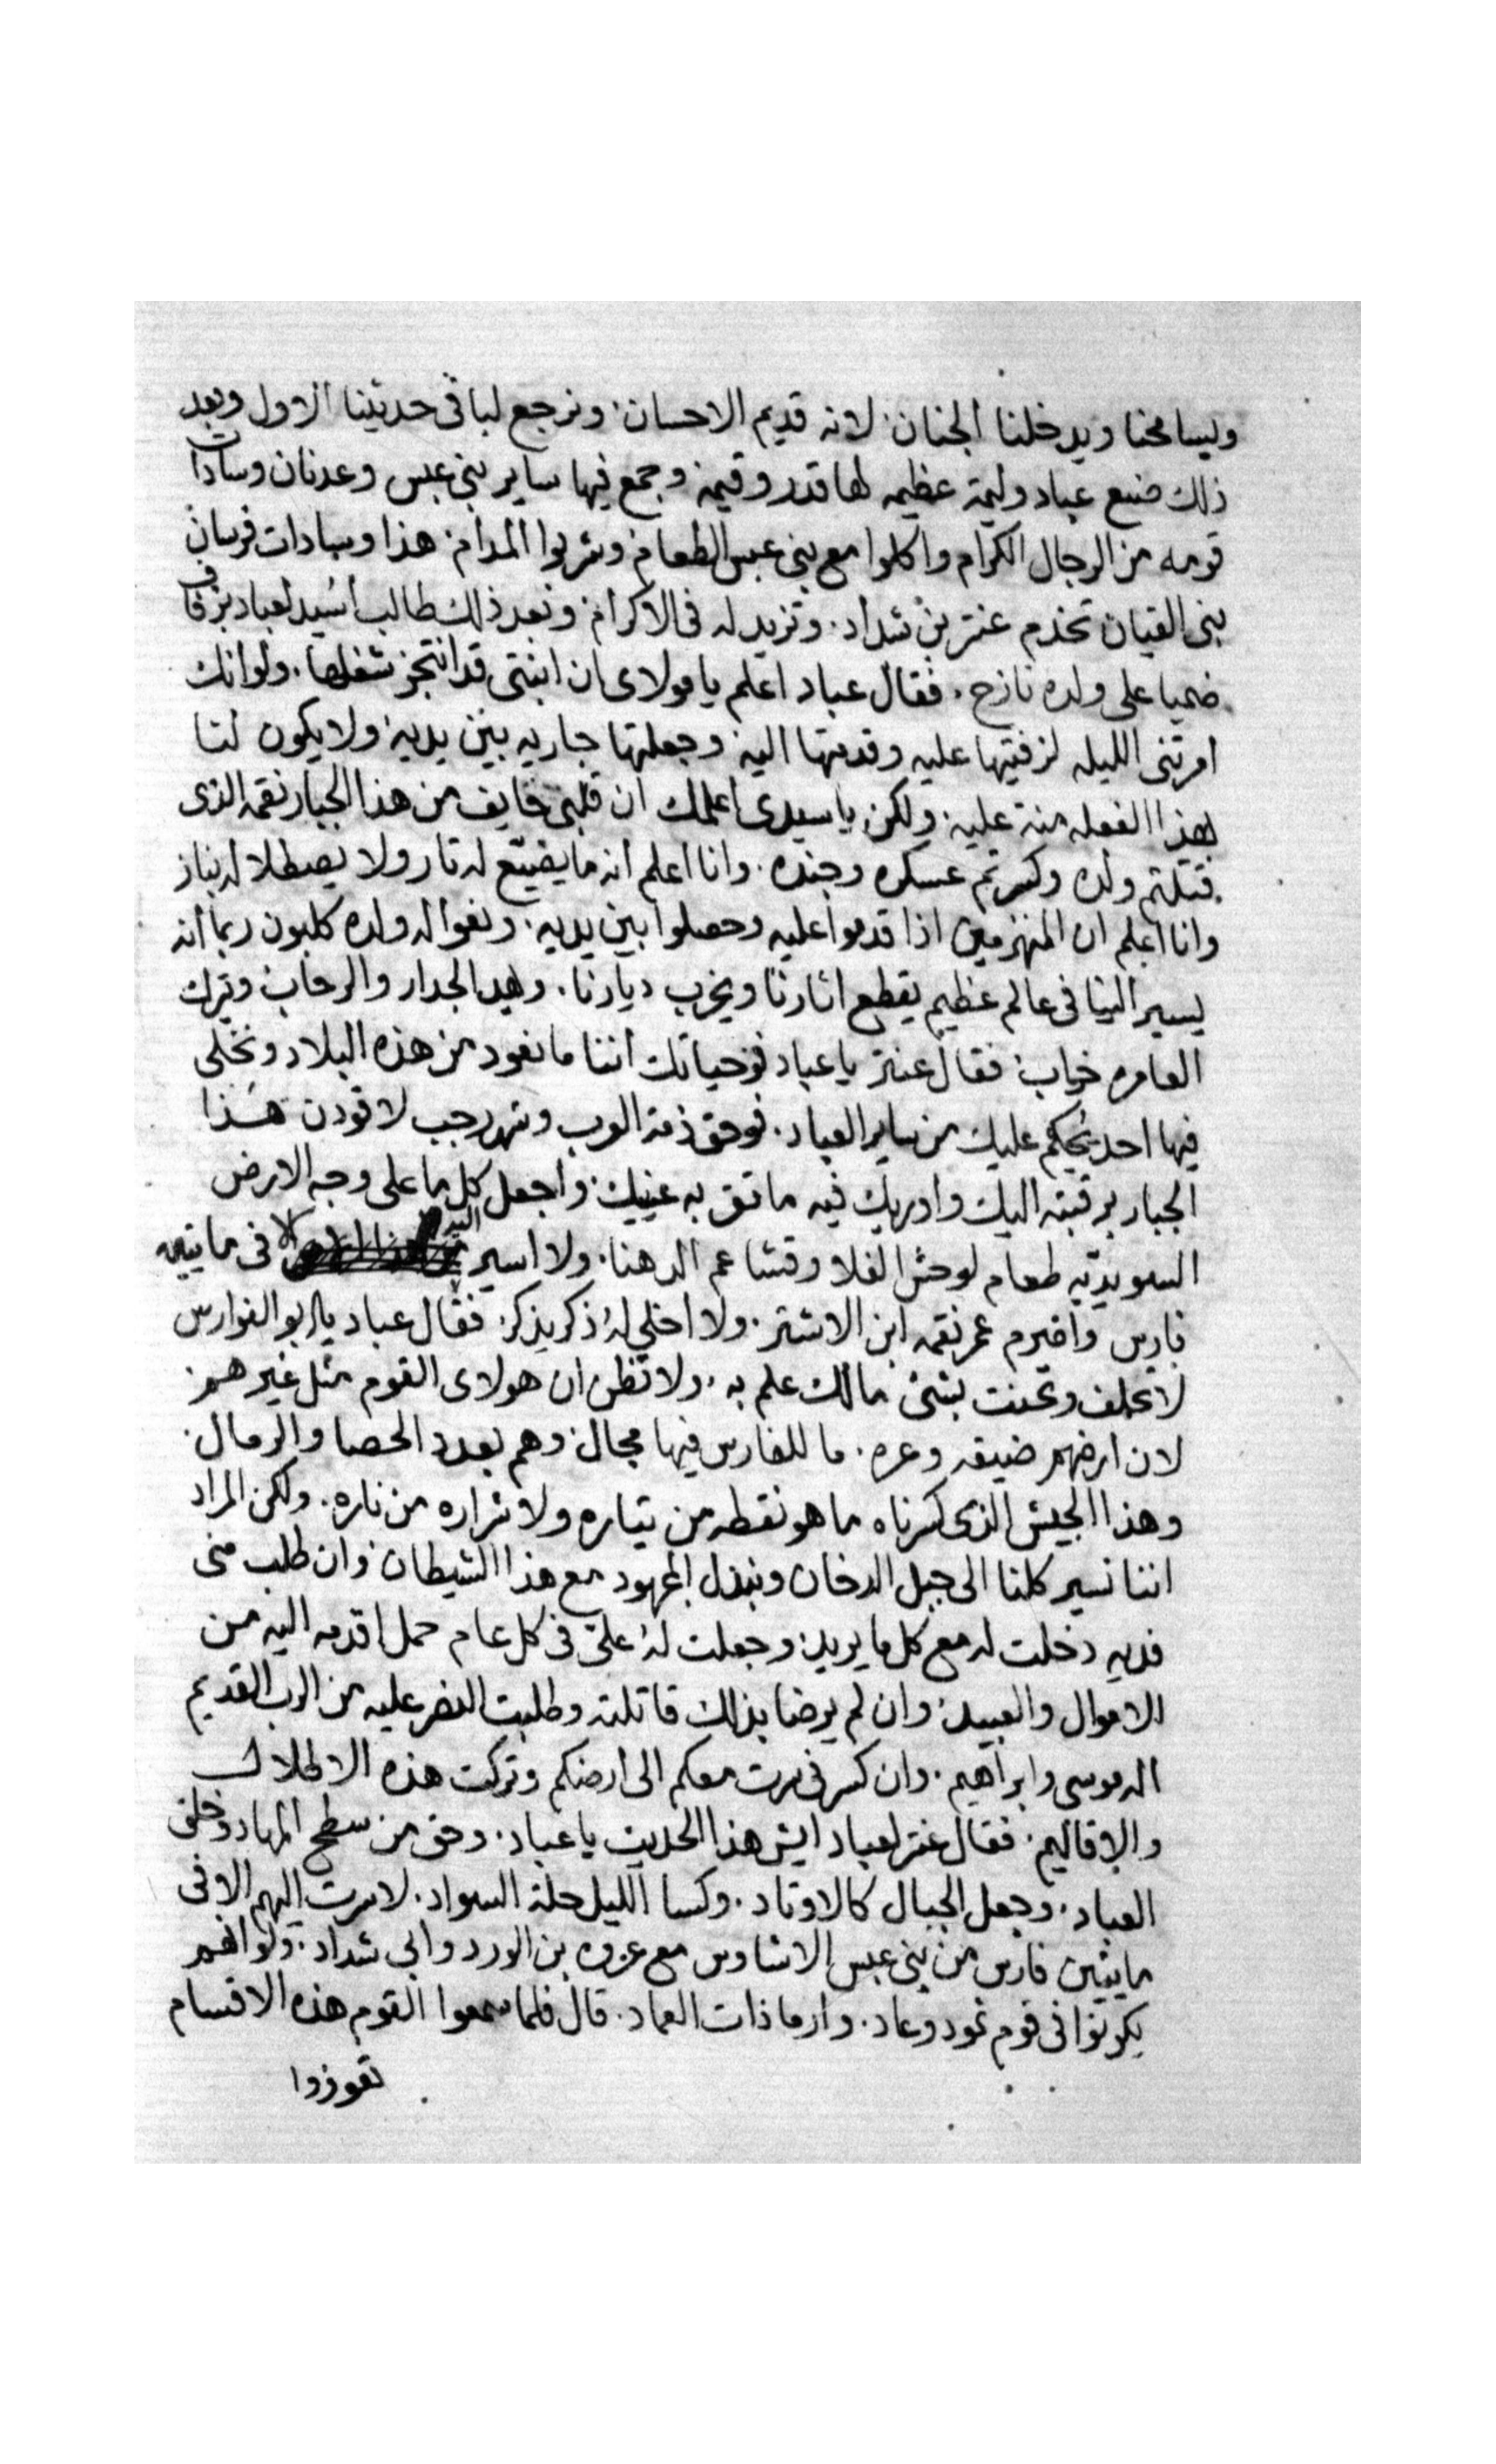 ويسامحنا ويدخلنا الجنان. لانه قديم الاحسان. ونرجع لباقى حديثنا الاول وبعد
ذلك صنع عباد وليمة عظيمه لها قدر وقيمة وجمع فيها ساير بنى عبس وعدنان وسادات
قومه من الرجال الكرام واكلوا مع بنى عبس الطعام. وشربوا المدام. هذا وسادات فرسان
بنى القيان تخدم عنتر بن شداد. وتزيد له فى الاكرام. وبعد ذلك طالب اسيد لعباد بزفاف
ضميا على ولده نازح. فقال عباد اعلم يا مولاى ان ابنتى قد انتجز شغلها. ولو انك
امرتنى الليله لزفيتها عليه وقدمتها اليه. وجعلتها جاريه بين يديه. ولا يكون لنا
بهذا الفعله منة عليه. ولكن يا سيدى اعلمك ان قلبى خايف من هذا الجبار نقمه الذى
قتلتم ولده وكسرتم عسكره وجنده. وانا اعلم انه ما يضيّع له تار ولا يصطلا له بنار
وانا اعلم ان المنهزمين اذا قدموا عليه وحصلوا بين يديه. ونعوا له ولده كلبون ربما انه
يسير الينا فى عالم عظيم يقطع اثارنا ويخرب ديارنا. ويهد الجدار والرحاب ويترك
العامره خراب. فقال عنتر يا عباد فوحياتك اننا ما نعود من هذه البلاد ونخلى
فيها احد يحكم عليك من ساير العباد. فوحق ذمة العرب وشهر رجب لاقودن هذا
الجبار برقبته اليك واوريك فيه ما تقر به عينيك. واجعل كل ما على وجه الارض
السويديّه طعام لوحش الفلا وقشاعم الدهنا. ولا اسير اليه الا فى مايتيه
فارس واصرم عمر نقمه ابن الاشتر. ولا اخلى له ذكر يذكر. فقال عباد يا ابو الفوارس
لا تحلف وتحنت بشئ ما لك علم به. ولا تظن ان هولاى القوم مثل غيرهم.
لان ارضهم ضيقه وعره. ما للفارس فيها مجال. وهم بعدد الحصا والرمال.
وهذا الجيش الذى كسرناه ما هو نقطه من تياره ولا شراره من ناره. ولكن المراد
اننا نسير كلنا الى جبل الدخان ونبذل المجهود مع هذا الشيطان. وان طلب منى
فديه دخلت له مع كل ما يريد. وجعلت له علىّ فى كل عام حمل اقدمه اليه من
الاموال والعبيد. وان لم يرضا بذلك قاتلته وطلبت النصر عليه من الرب القديم
اله موسى وابراهيم. وان كسرنى سرت معكم الى ارضكم وتركت هذه الاطلال
والاقاليم. فقال عنتر لعباد ايش هذا الحديث يا عباد. وحق من سطح المهاد وخلق
العباد. وجعل الجبال كالاوتاد. وكسا الليل حلة السواد. لا سرت اليهم الا فى
مايتين فارس من بنى عبس الاشاوس مع عروه بن الورد وابى شداد. ولو انهم
يكونوا فى قوم ثمود وعاد. وارما ذات العماد. قال فلما سمعوا القوم هذه الاقسام
تعوذوا